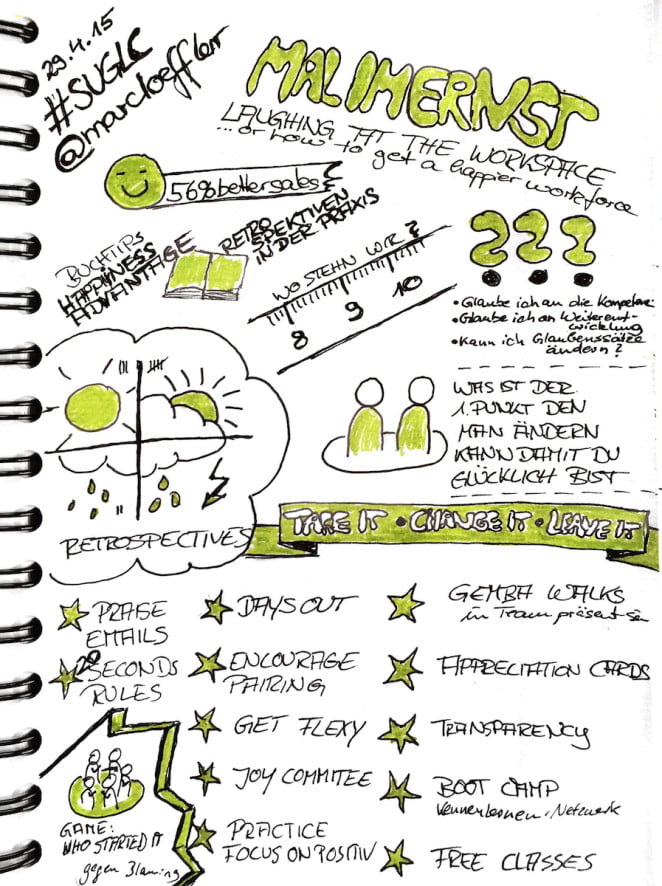 29.4.15
#SUGLC
@marcloeffler
MALIMERNST
LAUGHING AT THE WORKSPACE
...or how to get a happier workforce
56% better sales
BUCHTIPS
HAPPINESS
ADVANTAGE
RETRO
SPEKTIVEN
IN DER PRAXIS
WO STEHN WIR?
8 9 10
???
• Glaube ich an die Kompetenz
• Glaube ich an Weiterent-
wicklung
• Kann ich Glaubenssätze
ändern?
WAS IST DER
1. PUNKT DEN
MAN ÄNDERN
KANN DAMIT DU
GLÜCKLICH BIST
RETROSPECTIVES
TAKE IT • CHANGE IT • LEAVE IT
PRAISE
EMAILS
20 SECONDS
RULES
GAME:
WHO STARTED IT
gegen Blaming
DAYS OUT
ENCOURAGE
PAIRING
GET FLEXY
JOY COMMITEE
PRACTICE
FOCUS ON POSITIV
GEMBA WALKS
im Team präsent sein
APPRECIATION CARDS
TRANSPARENCY
BOOT CAMP
Kennenlernen, Netzwerk
FREE CLASSES